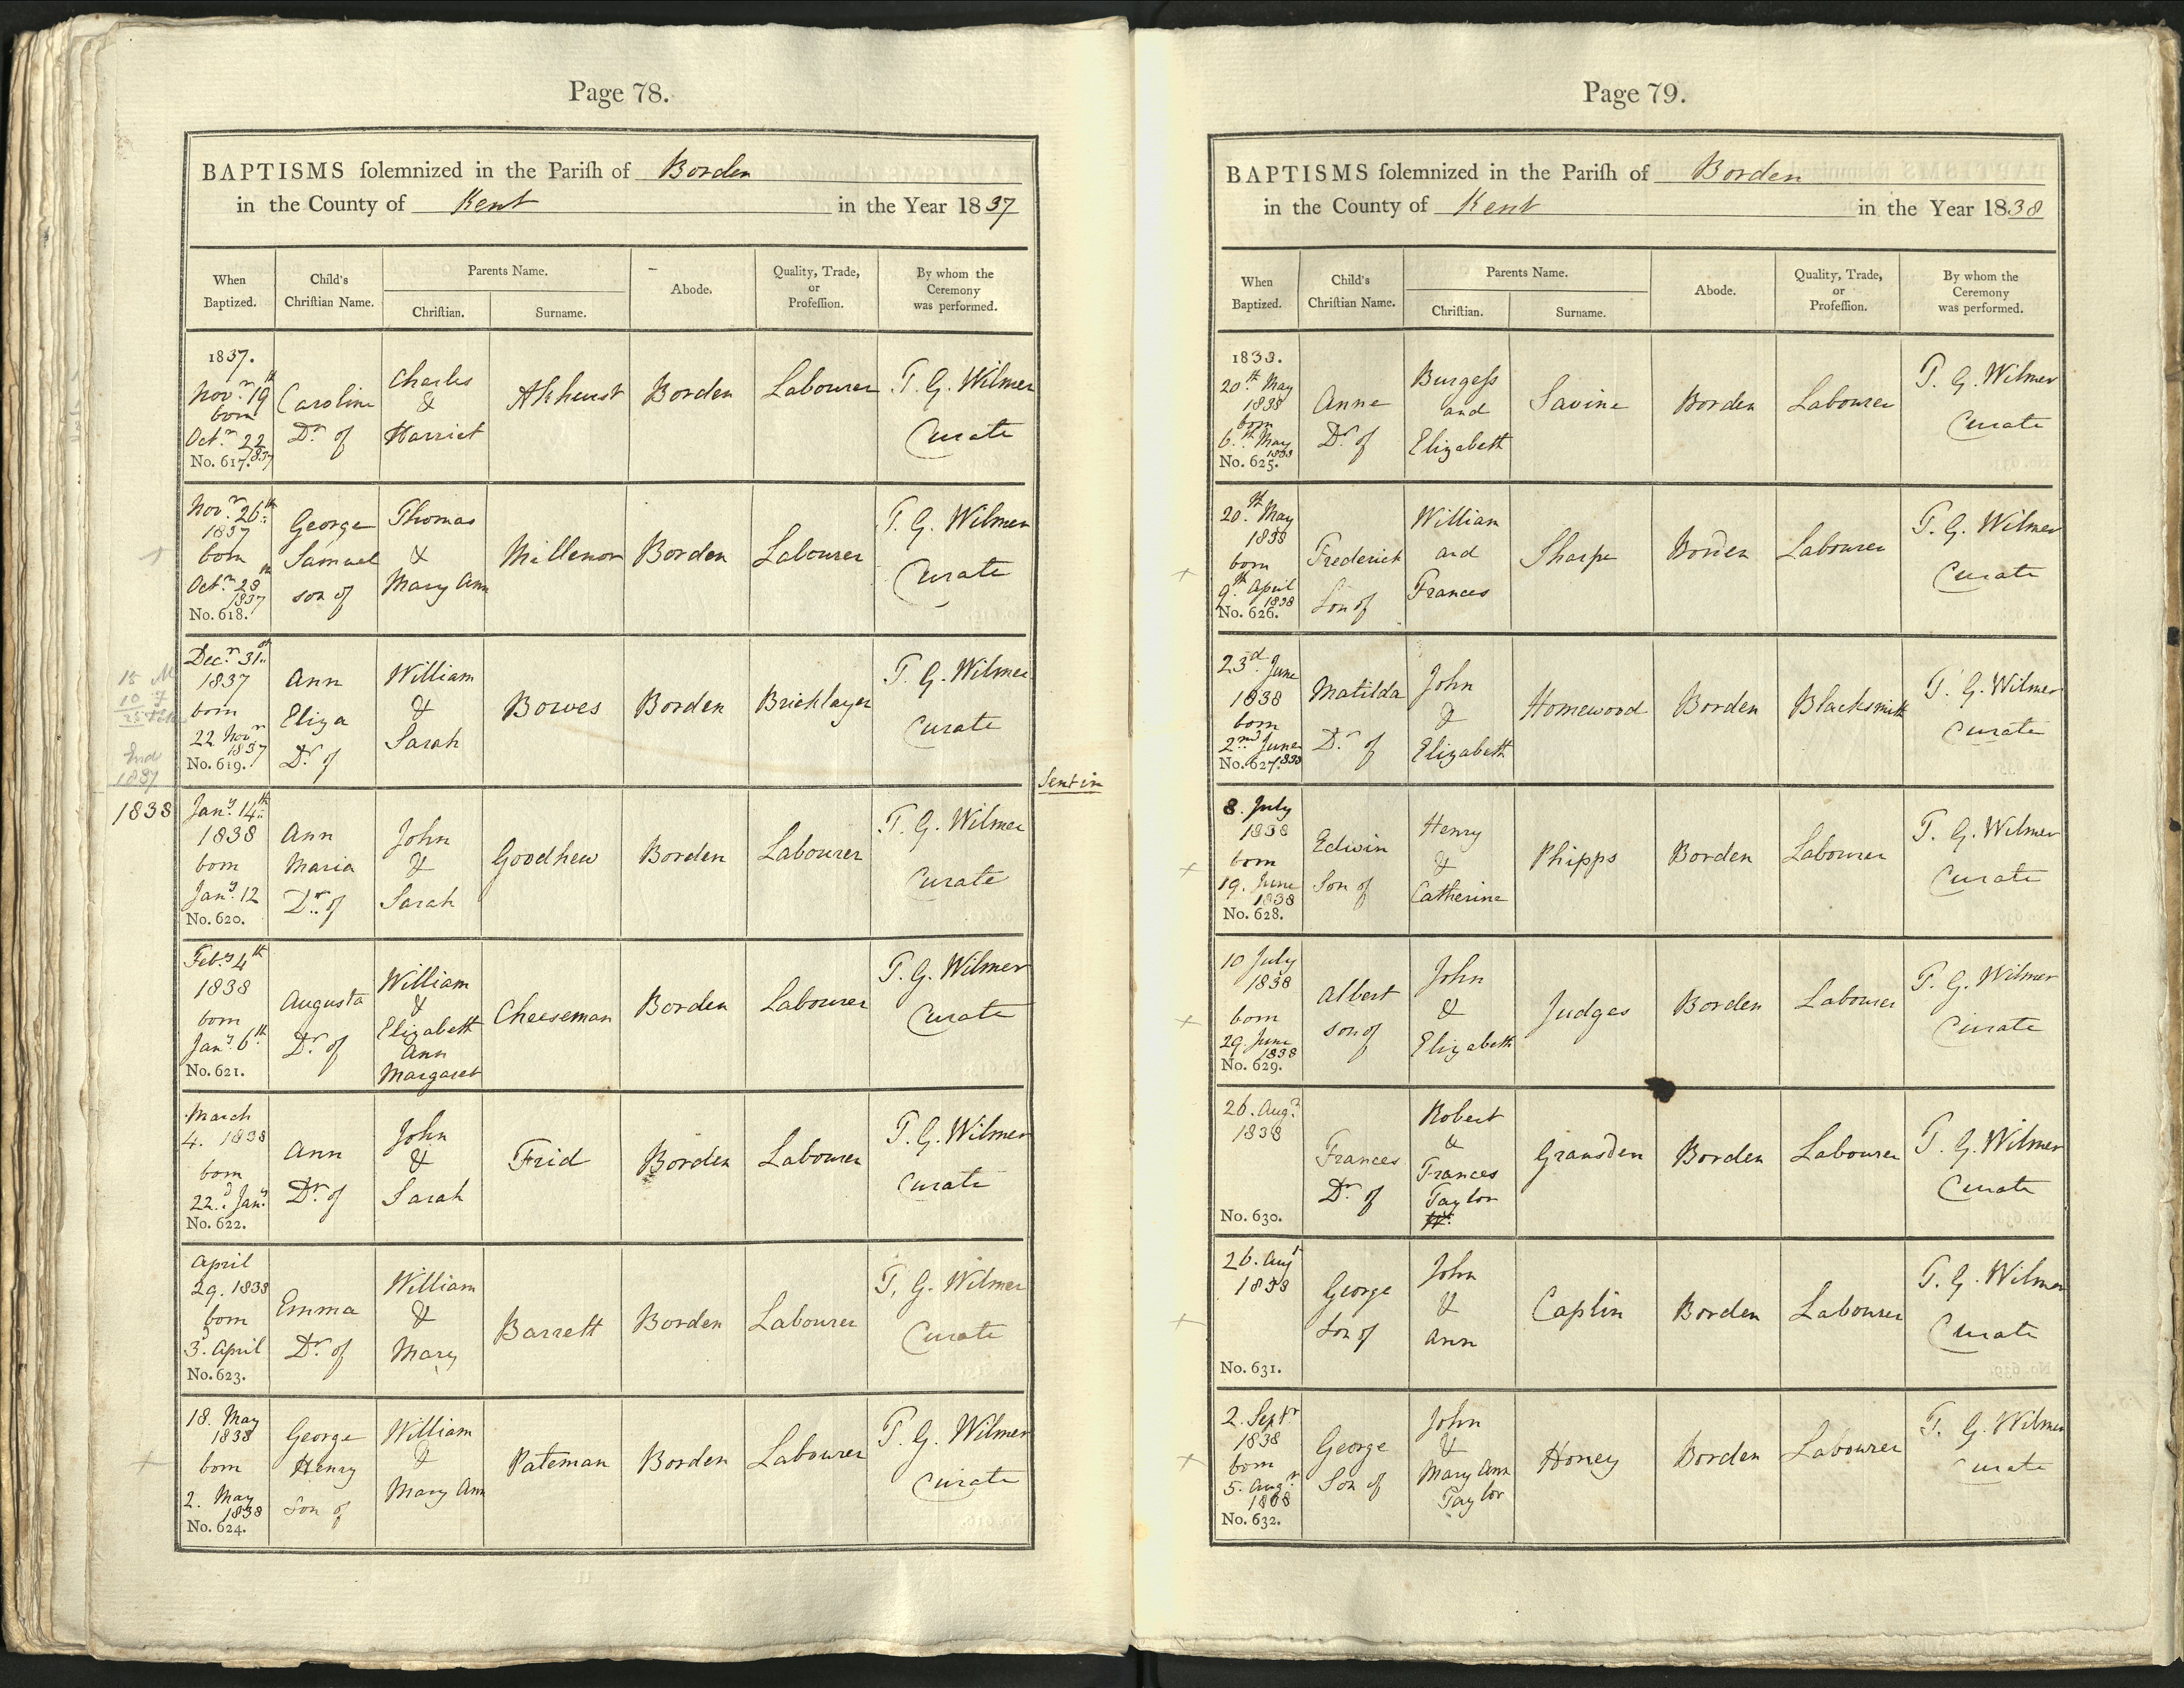 Page 78.
BAPTISMS ſolemnized in the Pariſh of Borden
in the County of Kent in the Year 1837
When Baptized.
Child's Chriſtian Name.
Parents Name.
Chriſtian.
Surname.
Abode.
Quality, Trade, or Profeſſion.
By whom the Ceremony was performed.
1837.
Novr. 19th
born
Octr. 22
1837
No. 617.
Caroline
Dr. of
Charles
&
Harriet
Akhurst
Borden
Labourer
T. G. Wilmer
Curate
Novr. 26th
1837
born
Octr. 28
1837
No. 618.
George
Samuel
son of
Thomas
&
Mary Ann
Millenor
Borden
Labourer
T. G. Wilmer
Curate
Decr. 31st
1837
born
22 Novr
1837
No. 619.
Ann
Eliza
Dr. of
William
&
Sarah
Bowes
Borden
Bricklayer
T. G. Wilmer
Curate
15 M
10 F
25
End
1837
Sent in
1838
Jany. 14th
1838
born
Jany. 12
No. 620.
Ann
Maria
Dr. of
John
&
Sarah
Goodhew
Borden
Labourer
T. G. Wilmer
Curate
Feby 4th
1838
born
Jany. 6th
No. 621.
Augusta
Dr. of
William
&
Elizabeth
Ann
Margaret
Cheeseman
Borden
Labourer
T. G. Wilmer
Curate
March
4. 1838
born
22d. Jany
No. 622.
Ann
Dr. of
John
&
Sarah
Frid
Borden
Labourer
T. G. Wilmer
Curate
April
29. 1838
born
3d. April
No. 623.
Emma
Dr. of
William
&
Mary
Barrett
Borden
Labourer
T. G. Wilmer
Curate
18. May
1838
born
2. May
1838
No. 624.
George
Henry
Son of
William
&
Mary Ann
Pateman
Borden
Labourer
T. G. Wilmer
Curate
Page 79.
BAPTISMS ſolemnized in the Pariſh of Borden
in the County of Kent in the Year 1838
When Baptized.
Child's Chriſtian Name.
Parents Name.
Chriſtian.
Surname.
Abode.
Quality, Trade, or Profeſſion.
By whom the Ceremony was performed.
1838.
20th May
1838
born
6th May
1838
No. 625.
Anne
Dr. of
Burgeſs
and
Elizabeth
Savine
Borden
Labourer
T. G. Wilmer
Curate
20th May
1838
born
9th April
1838
No. 626.
Frederick
Son of
William
and
Frances
Sharpe
Borden
Labourer
T. G. Wilmer
Curate
23d. June
1838
born
2nd June
1838
No. 627.
Matilda
Dr. of
John
&
Elizabeth
Homewood
Borden
Blacksmith
T. G. Wilmer
Curate
8. July
1838
born
19. June
1838
No. 628.
Edwin
Son of
Henry
&
Catherine
Phipps
Borden
Labourer
T. G. Wilmer
Curate
10 July
1838
born
29. June
1838
No. 629.
Albert
son of
John
&
Elizabeth
Judges
Borden
Labourer
T. G. Wilmer
Curate
26. Augt
1838
No. 630.
Frances
Dr. of
Robert
&
Frances
Taylor
Gransden
Borden
Labourer
T. G. Wilmer
Curate
26. Augt
1838
No. 631.
George
Son of
John
&
Ann
Caplin
Borden
Labourer
T. G. Wilmer
Curate
2. Septr
1838
born
5. Augt
1838
No. 632.
George
Son of
John
&
Mary Ann
Taylor
Honey
Borden
Labourer
T. G. Wilmer
Curate